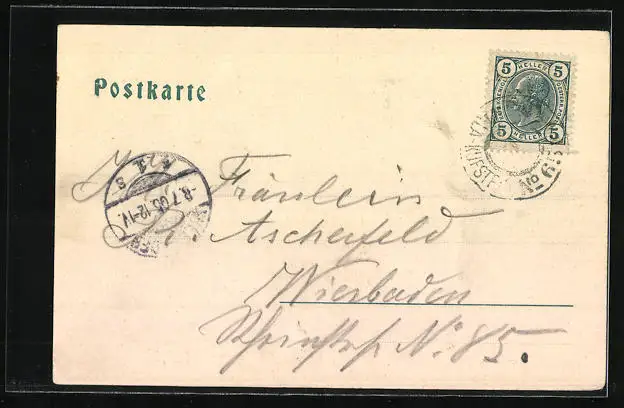 Postkarte
5 HELLER 5
5 HELLER 5
KUFSTE
No 6
8.7.05.12-1V.
Fräulein
Ascherfeld
Wiesbaden
Rheinstr No. 85.